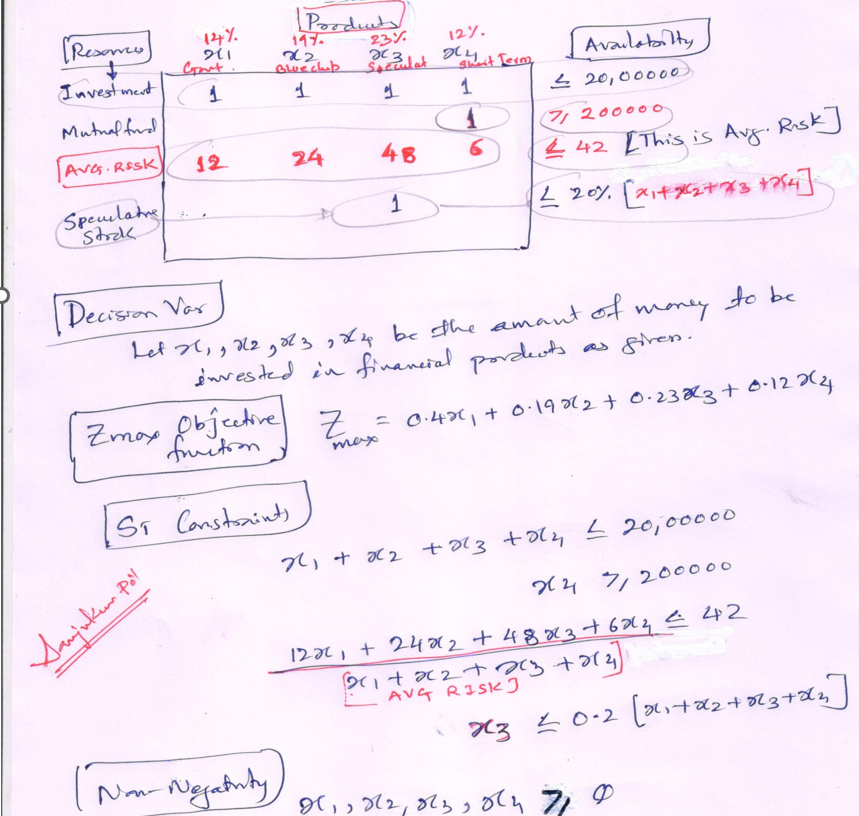 Products
14% 19% 23% 12%
Resources x1 x2 x3 x4 Availability
Govt. Blue chip Speculat Short Term
Investment 1 1 1 1 ≤ 20,00000
Mutual fund 1 ≥ 200000
AVG. RISK 12 24 48 6 ≤ 42 [This is Avg. Risk]
Speculative 1 ≤ 20% [x1+x2+x3+x4]
Stock
Decision Var
Let x1, x2, x3, x4 be the amount of money to be
invested in financial products as given.
Zmax Objective
function
Z max = 0.4x1 + 0.19x2 + 0.23x3 + 0.12x4
ST Constraints
x1 + x2 + x3 + x4 ≤ 20,00000
x4 ≥ 200000
12x1 + 24x2 + 48x3 + 6x4 ≤ 42
[x1 + x2 + x3 + x4]
[AVG RISK]
x3 ≤ 0.2 [x1+x2+x3+x4]
Non-Negativity
x1, x2, x3, x4 ≥ 0